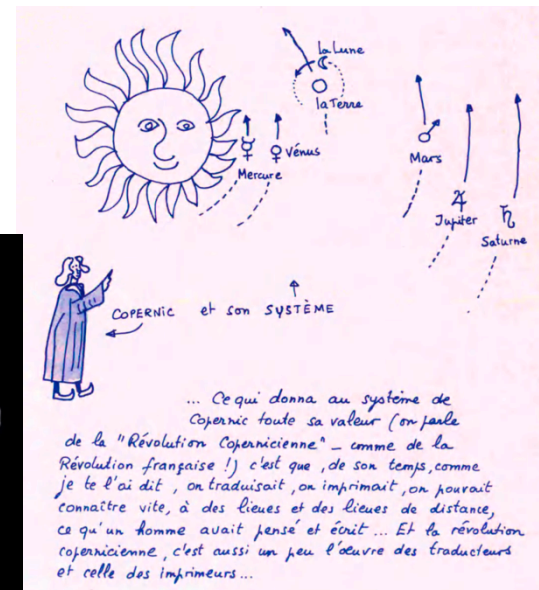 la Lune
la Terre
Vénus
Mercure
Mars
Jupiter
Saturne
COPERNIC et son SYSTÈME
... Ce qui donna au système de
Copernic toute sa valeur (on parle
de la "Révolution Copernicienne" _ comme de la
Révolution française !) c'est que, de son temps, comme
je te l'ai dit, on traduisait, on imprimait, on pouvait
connaître vite, à des lieues et des lieues de distance,
ce qu'un homme avait pensé et écrit ... Et la révolution
copernicienne, c'est aussi un peu l'œuvre des traducteurs
et celle des imprimeurs ...